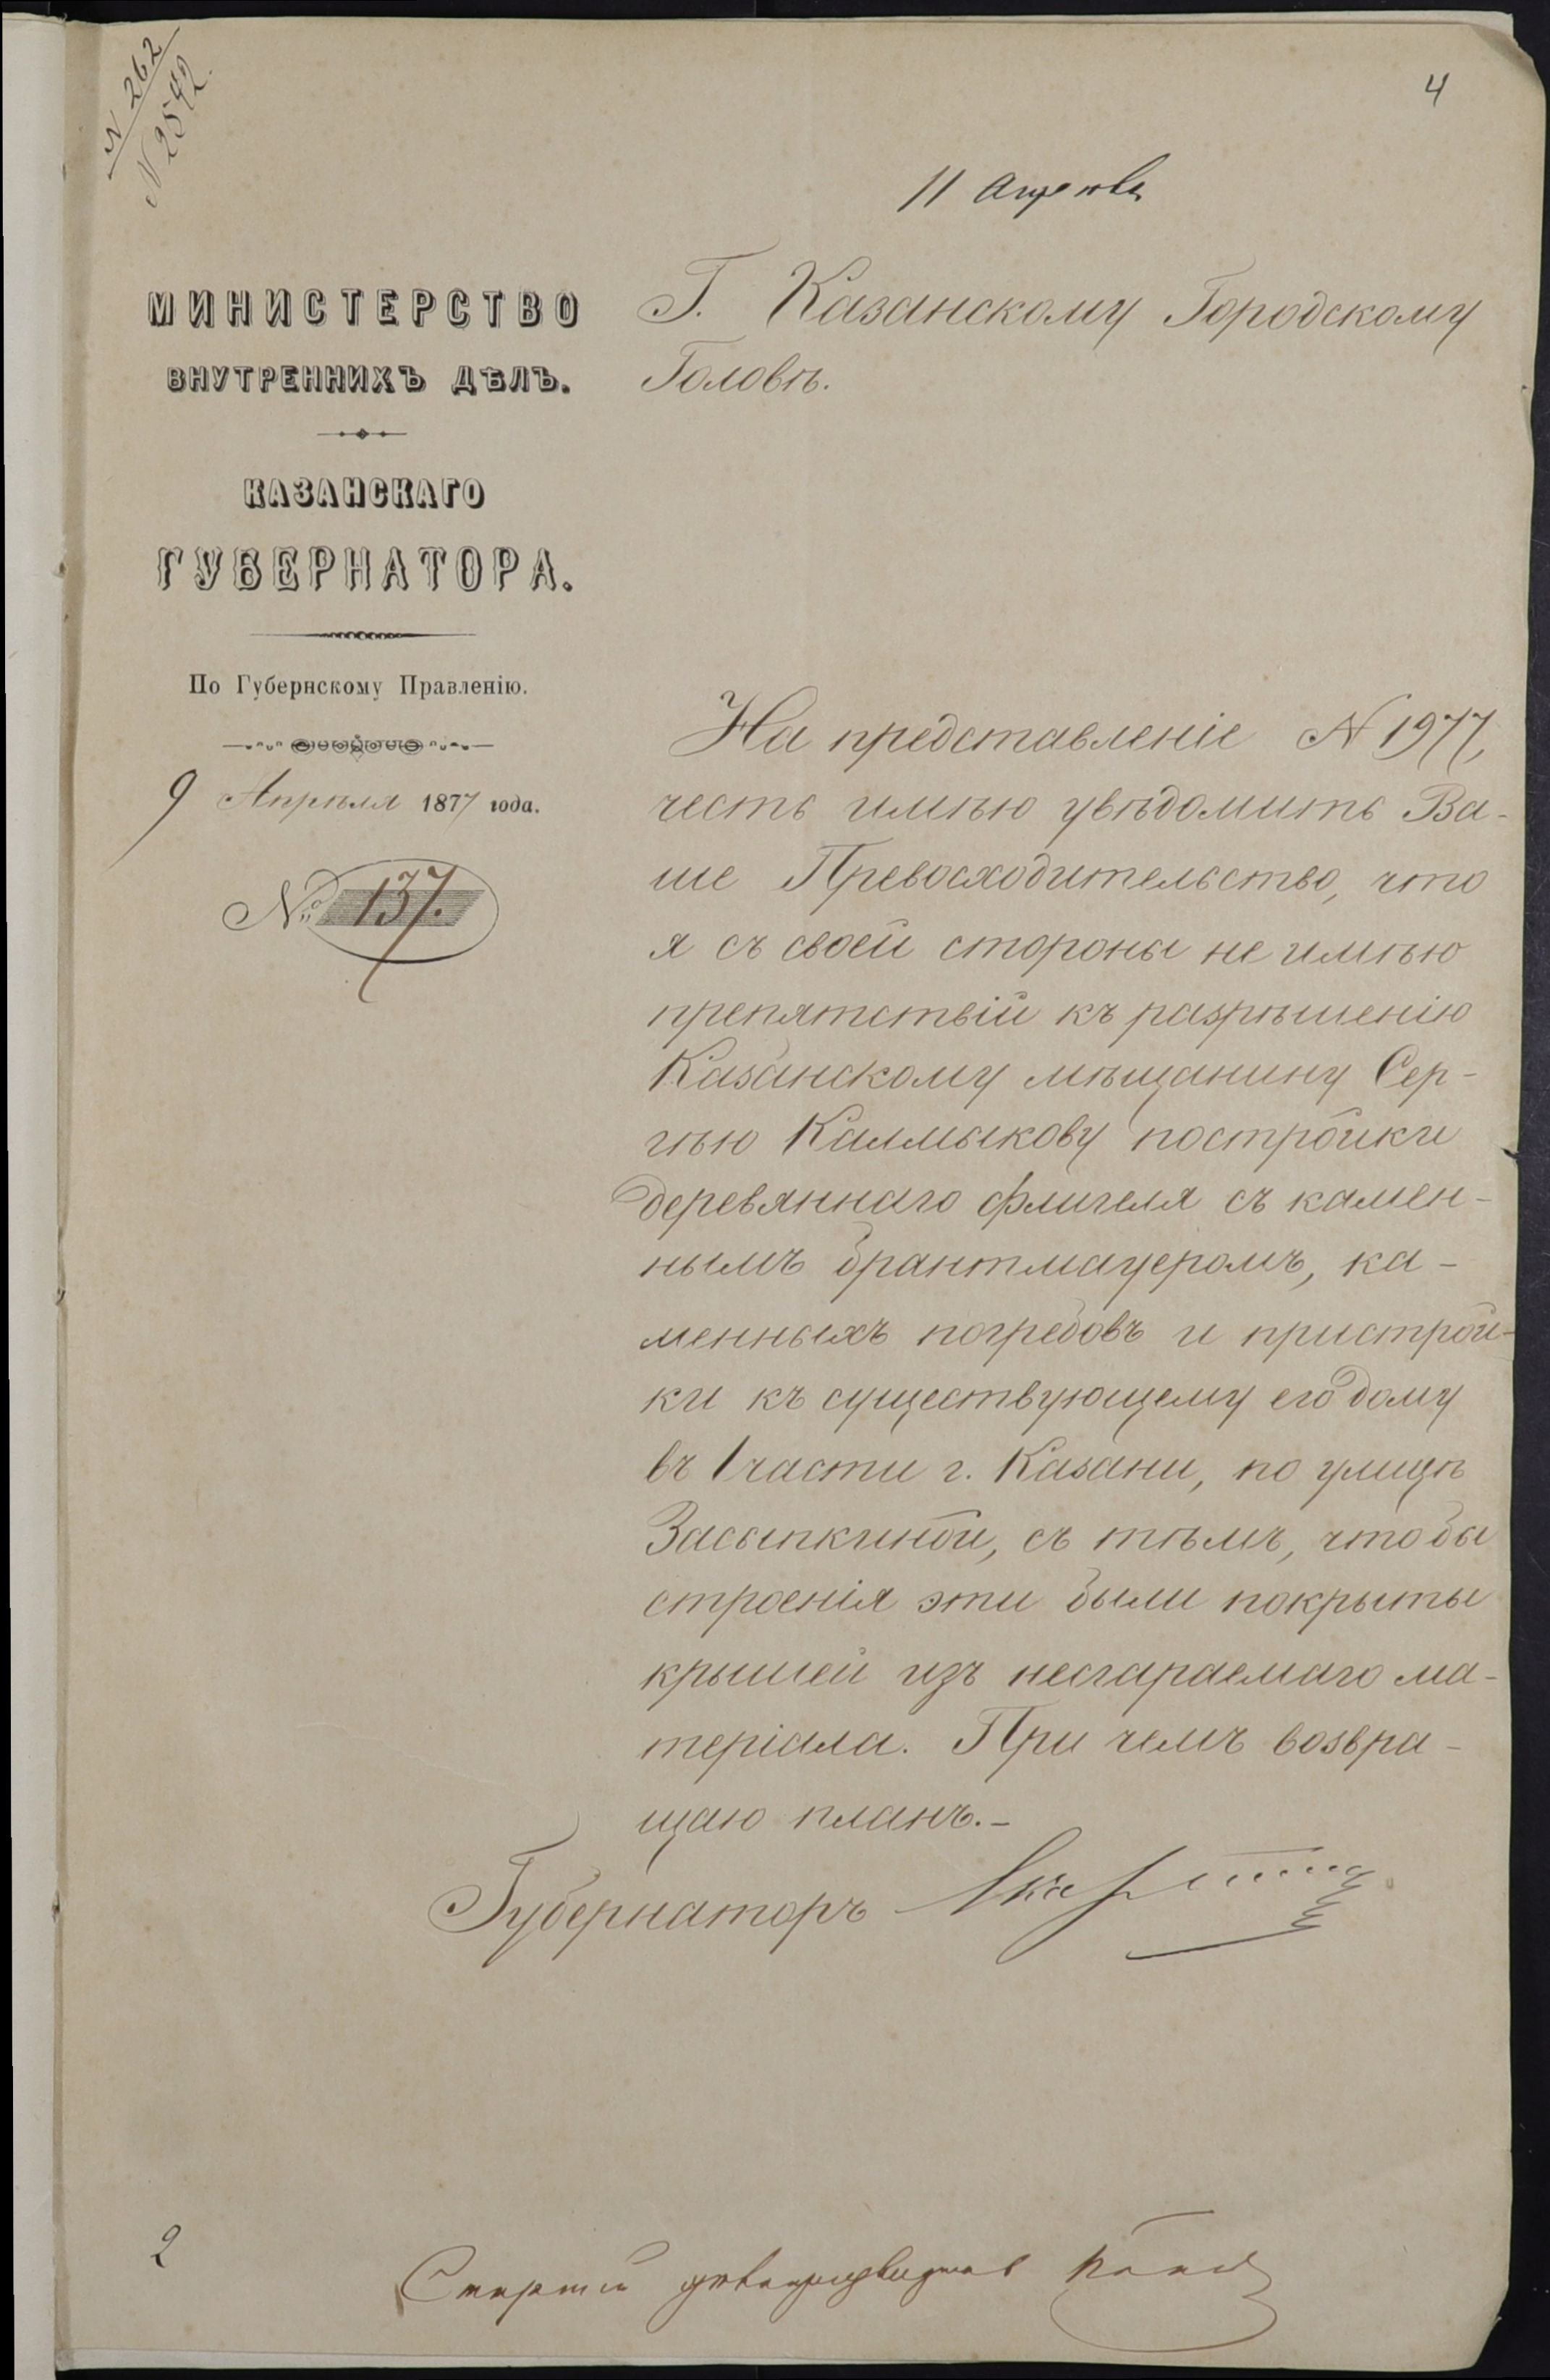 N 262
N 2542
4
11 Апреля
МИНИСТЕРСТВО
ВНУТРЕННИХЪ ДѢЛЪ.
КАЗАНСКАГО
ГУБЕРНАТОРА.
По Губернскому Правленію.
9 Апрѣля 1877 года.
№ 137.
Г. Казанскому Городскому
Головѣ.
На представленіе N 1977,
честь имѣю увѣдомить Ва-
ше Превосходительство, что
я съ своей стороны не имѣю
препятствій къ разрѣшенію
Казанскому мѣщанину Сер-
гѣю Калмыкову постройки
деревяннаго флигеля съ камен-
нымъ брантмауеромъ, ка-
менныхъ погребовъ и пристрой-
ки къ существующему его дому
въ 1 части г. Казани, по улицѣ
Засыпкиной, съ тѣмъ, чтобы
строенія эти были покрыты
крышей изъ несгараемаго ма-
теріала. При чемъ возвра-
щаю планъ.-
Губернаторъ
2